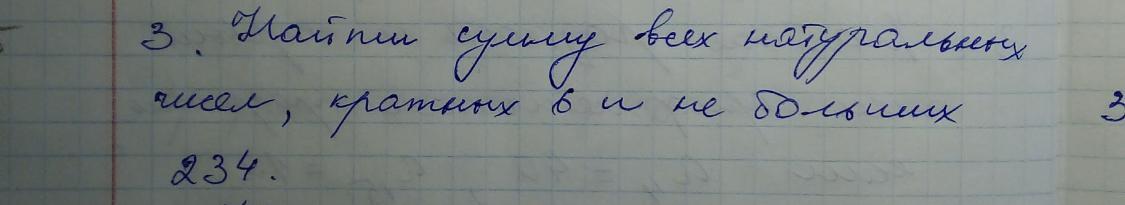 3. Найти сумму всех натуральных
чисел, кратных 6 и не больших
234.